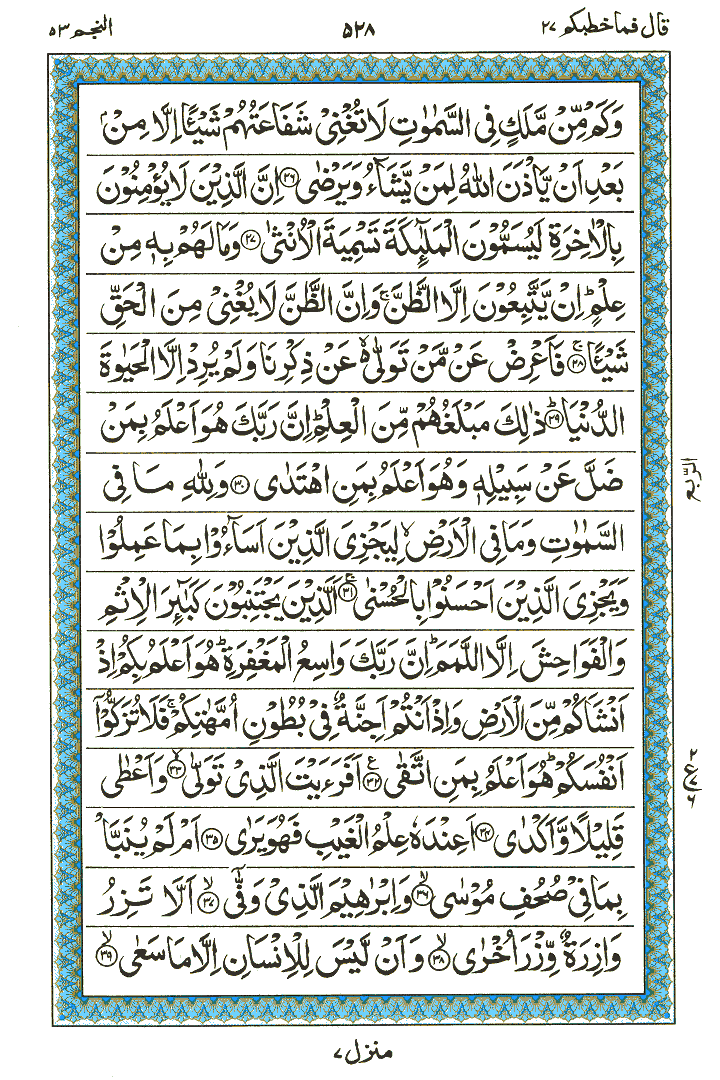 قال فماخطبكم ٢٧
٥٢٨
النجم ٥٣
وَكَمْ مِّنْ مَّلَكٍ فِى السَّمٰوٰتِ لَا تُغْنِىْ شَفَاعَتُهُمْ شَيْـًٔا اِلَّا مِنْۢ
بَعْدِ اَنْ يَّاْذَنَ اللّٰهُ لِمَنْ يَّشَآءُ وَيَرْضٰى ﴿٢٦﴾ اِنَّ الَّذِيْنَ لَا يُؤْمِنُوْنَ
بِالْاٰخِرَةِ لَيُسَمُّوْنَ الْمَلٰٓئِكَةَ تَسْمِيَةَ الْاُنْثٰى ﴿٢٧﴾ وَمَا لَهُمْ بِهٖ مِنْ
عِلْمٍؕ اِنْ يَّتَّبِعُوْنَ اِلَّا الظَّنَّۚ وَاِنَّ الظَّنَّ لَا يُغْنِىْ مِنَ الْحَقِّ
شَيْـًٔاۚ ﴿٢٨﴾ فَاَعْرِضْ عَنْ مَّنْ تَوَلّٰى۬ۙ عَنْ ذِكْرِنَا وَلَمْ يُرِدْ اِلَّا الْحَيٰوةَ
الدُّنْيَاؕ ﴿٢٩﴾ ذٰلِكَ مَبْلَغُهُمْ مِّنَ الْعِلْمِؕ اِنَّ رَبَّكَ هُوَ اَعْلَمُ بِمَنْ
ضَلَّ عَنْ سَبِيْلِهٖ وَهُوَ اَعْلَمُ بِمَنِ اهْتَدٰى ﴿٣٠﴾ وَلِلّٰهِ مَا فِى
السَّمٰوٰتِ وَمَا فِى الْاَرْضِۙ لِيَجْزِىَ الَّذِيْنَ اَسَآءُوْا بِمَا عَمِلُوْا
وَيَجْزِىَ الَّذِيْنَ اَحْسَنُوْا بِالْحُسْنٰىۚ ﴿٣١﴾ اَلَّذِيْنَ يَجْتَنِبُوْنَ كَبٰٓئِرَ الْاِثْمِ
وَالْفَوَاحِشَ اِلَّا اللَّمَمَؕ اِنَّ رَبَّكَ وَاسِعُ الْمَغْفِرَةِؕ هُوَ اَعْلَمُ بِكُمْ اِذْ
اَنْشَاَكُمْ مِّنَ الْاَرْضِ وَاِذْ اَنْتُمْ اَجِنَّةٌ فِىْ بُطُوْنِ اُمَّهٰتِكُمْۚ فَلَا تُزَكُّوْۤا
اَنْفُسَكُمْؕ هُوَ اَعْلَمُ بِمَنِ اتَّقٰى ﴿٣٢﴾ع اَفَرَءَيْتَ الَّذِىْ تَوَلّٰىۙ ﴿٣٣﴾ وَاَعْطٰى
قَلِيْلًا وَّاَكْدٰى ﴿٣٤﴾ اَعِنْدَهٗ عِلْمُ الْغَيْبِ فَهُوَ يَرٰى ﴿٣٥﴾ اَمْ لَمْ يُنَبَّاْ
بِمَا فِىْ صُحُفِ مُوْسٰىۙ ﴿٣٦﴾ وَاِبْرٰهِيْمَ الَّذِىْ وَفّٰىۤۙ ﴿٣٧﴾ اَلَّا تَزِرُ
وَازِرَةٌ وِّزْرَ اُخْرٰىۙ ﴿٣٨﴾ وَاَنْ لَّيْسَ لِلْاِنْسَانِ اِلَّا مَا سَعٰىۙ ﴿٣٩﴾
الرّبع
٢
ع
٦
منزل ٧